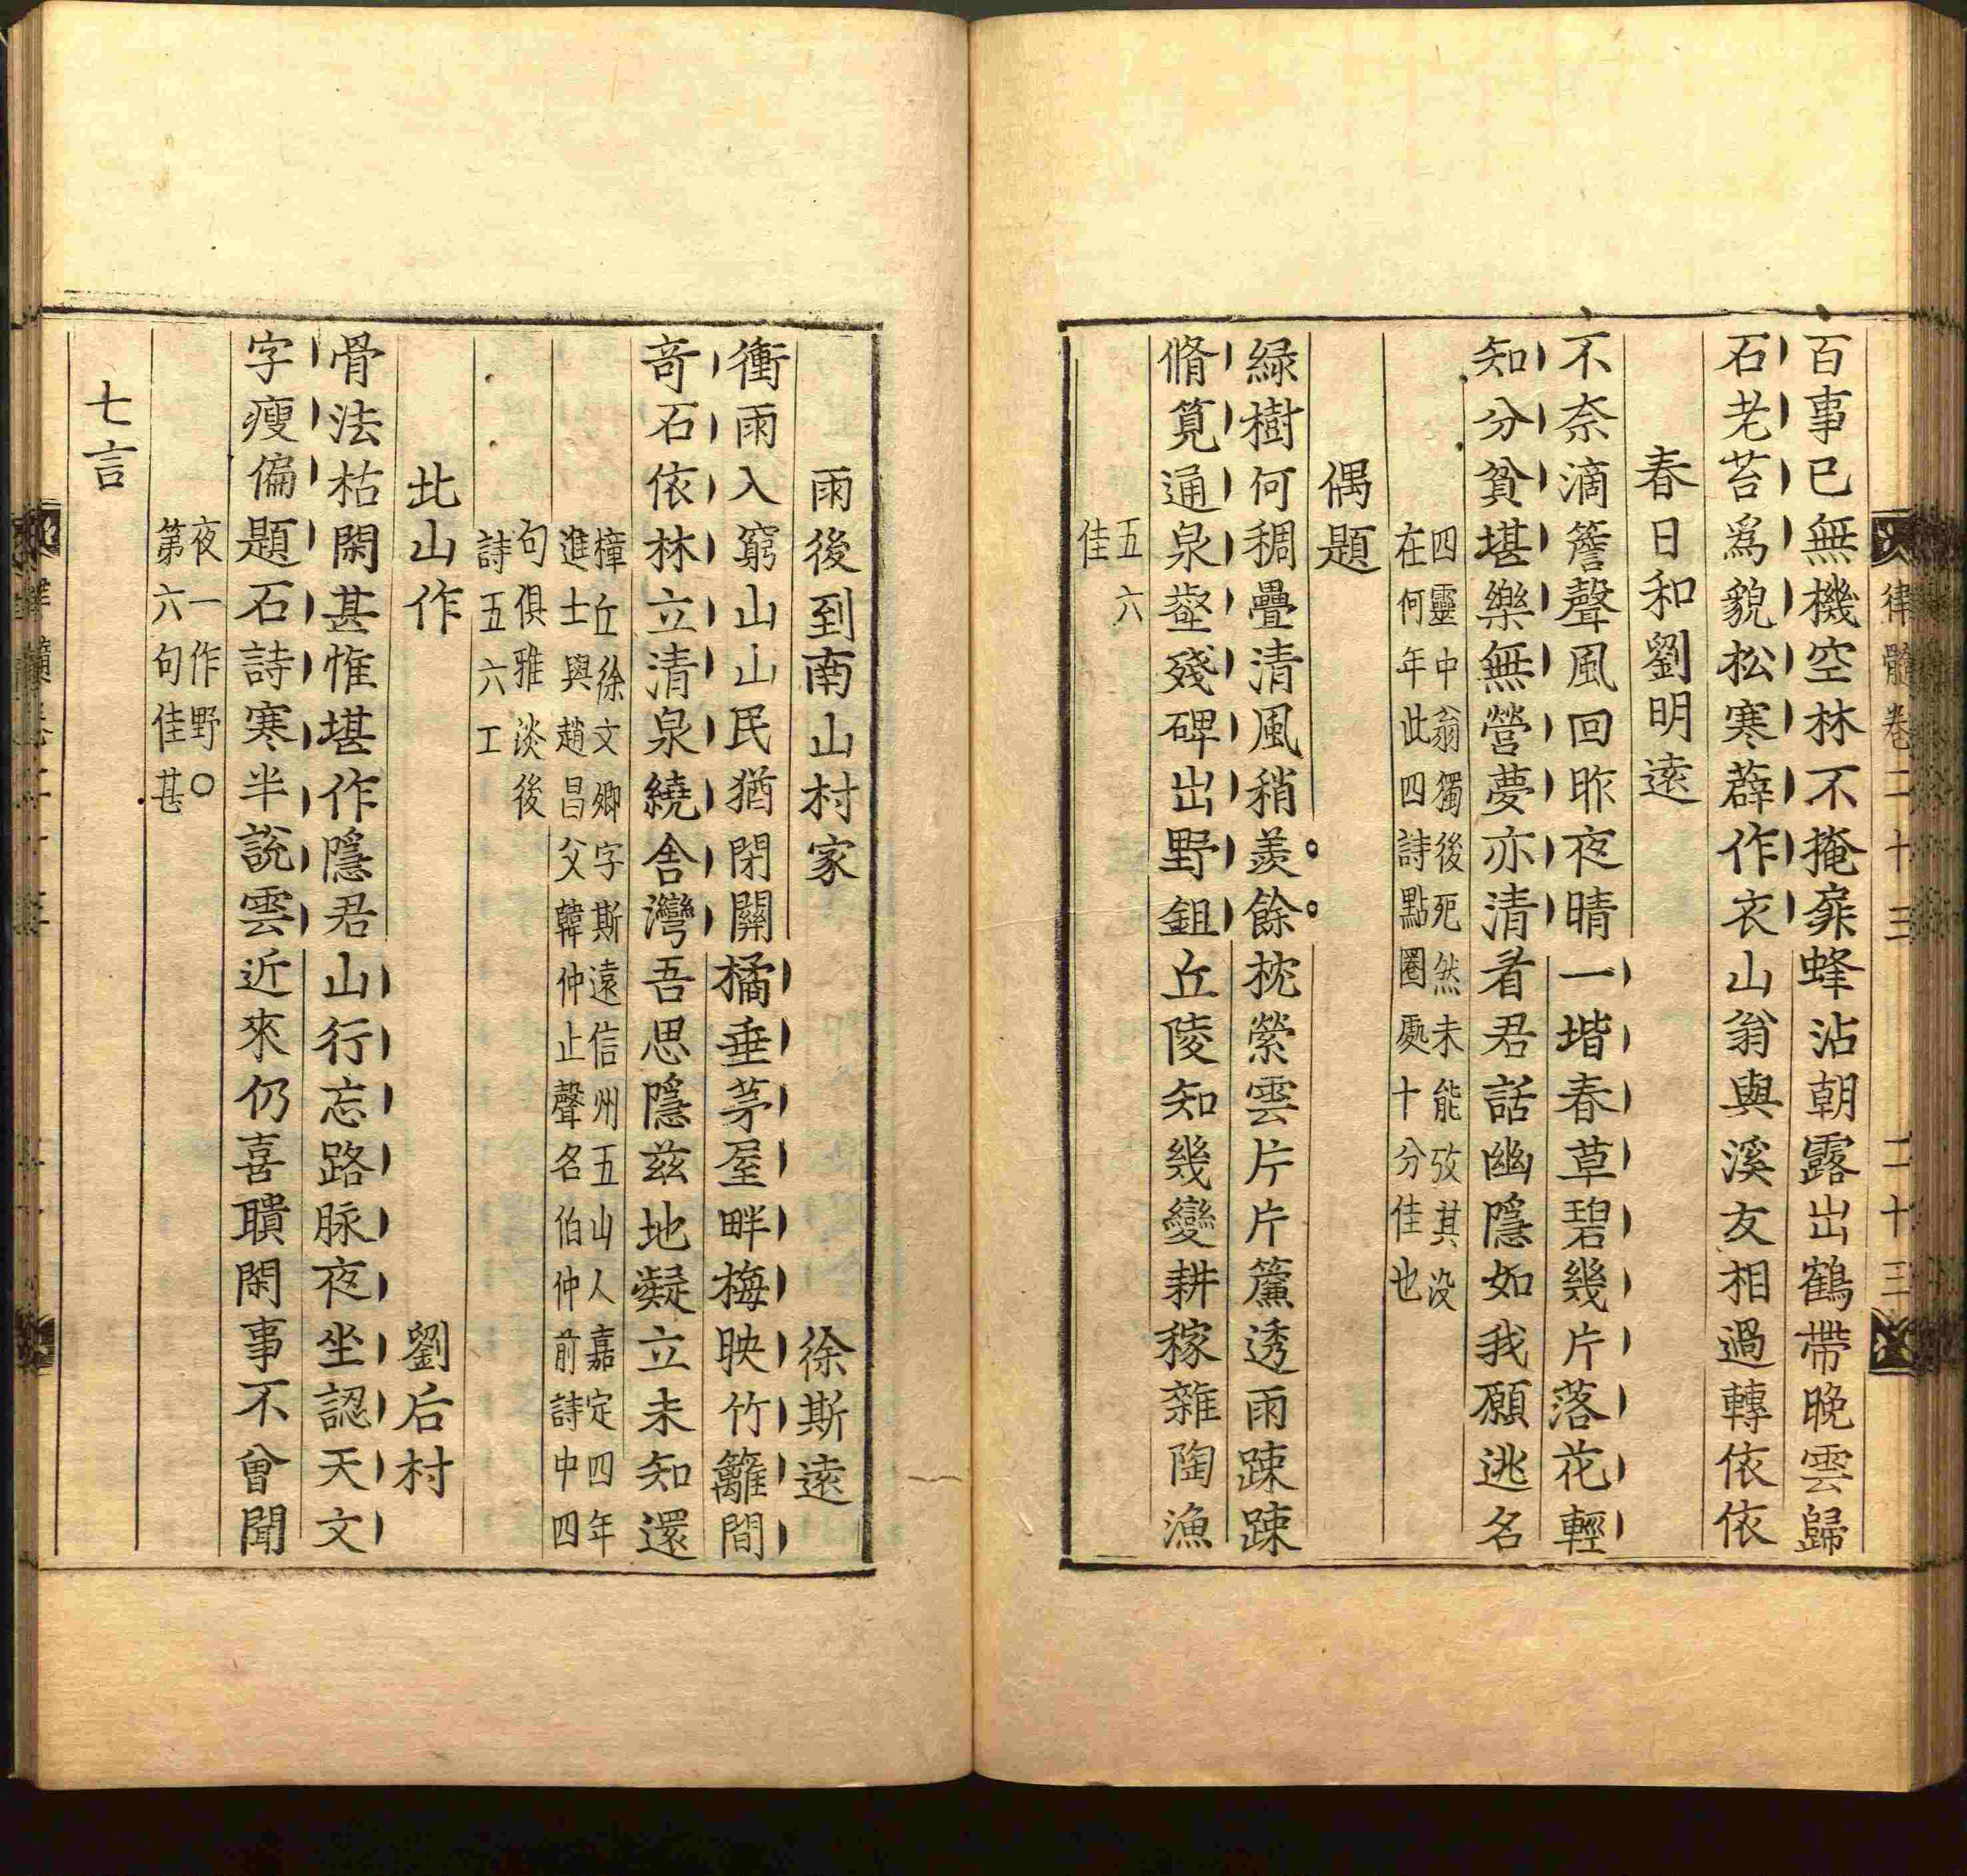 律髓卷二十三 二十三
百事已無機空林不掩扉蜂沾朝露出鶴帶晚雲歸
石老苔爲貌松寒薜作衣山翁與溪友相過轉依依
春日和劉明遠
不奈滴簷聲風回昨夜晴一堦春草碧幾片落花輕
知分貧堪樂無營夢亦清看君話幽隱如我願逃名
四靈中翁獨後死然未能攷其没
在何年此四詩點圈處十分佳也
偶題
緑樹何稠疊清風稍羨餘枕縈雲片片簾透雨疎疎
脩筧通泉壑殘碑出野鉏丘陵知幾變耕稼雜陶漁
五六
佳
雨後到南山村家 徐斯遠
衝雨入窮山山民猶閉關橘垂茅屋畔梅映竹籬間
奇石依林立清泉繞舍灣吾思隱兹地凝立未知還
樟丘徐文卿字斯遠信州五山人嘉定四年
進士與趙昌父韓仲止聲名伯仲前詩中四
句俱雅淡後
詩五六工
北山作 劉后村
骨法枯閑甚惟堪作隱君山行忘路脉夜坐認天文
字瘦偏題石詩寒半說雲近來仍喜聵閑事不曾聞
夜一作野○
第六句佳甚
七言